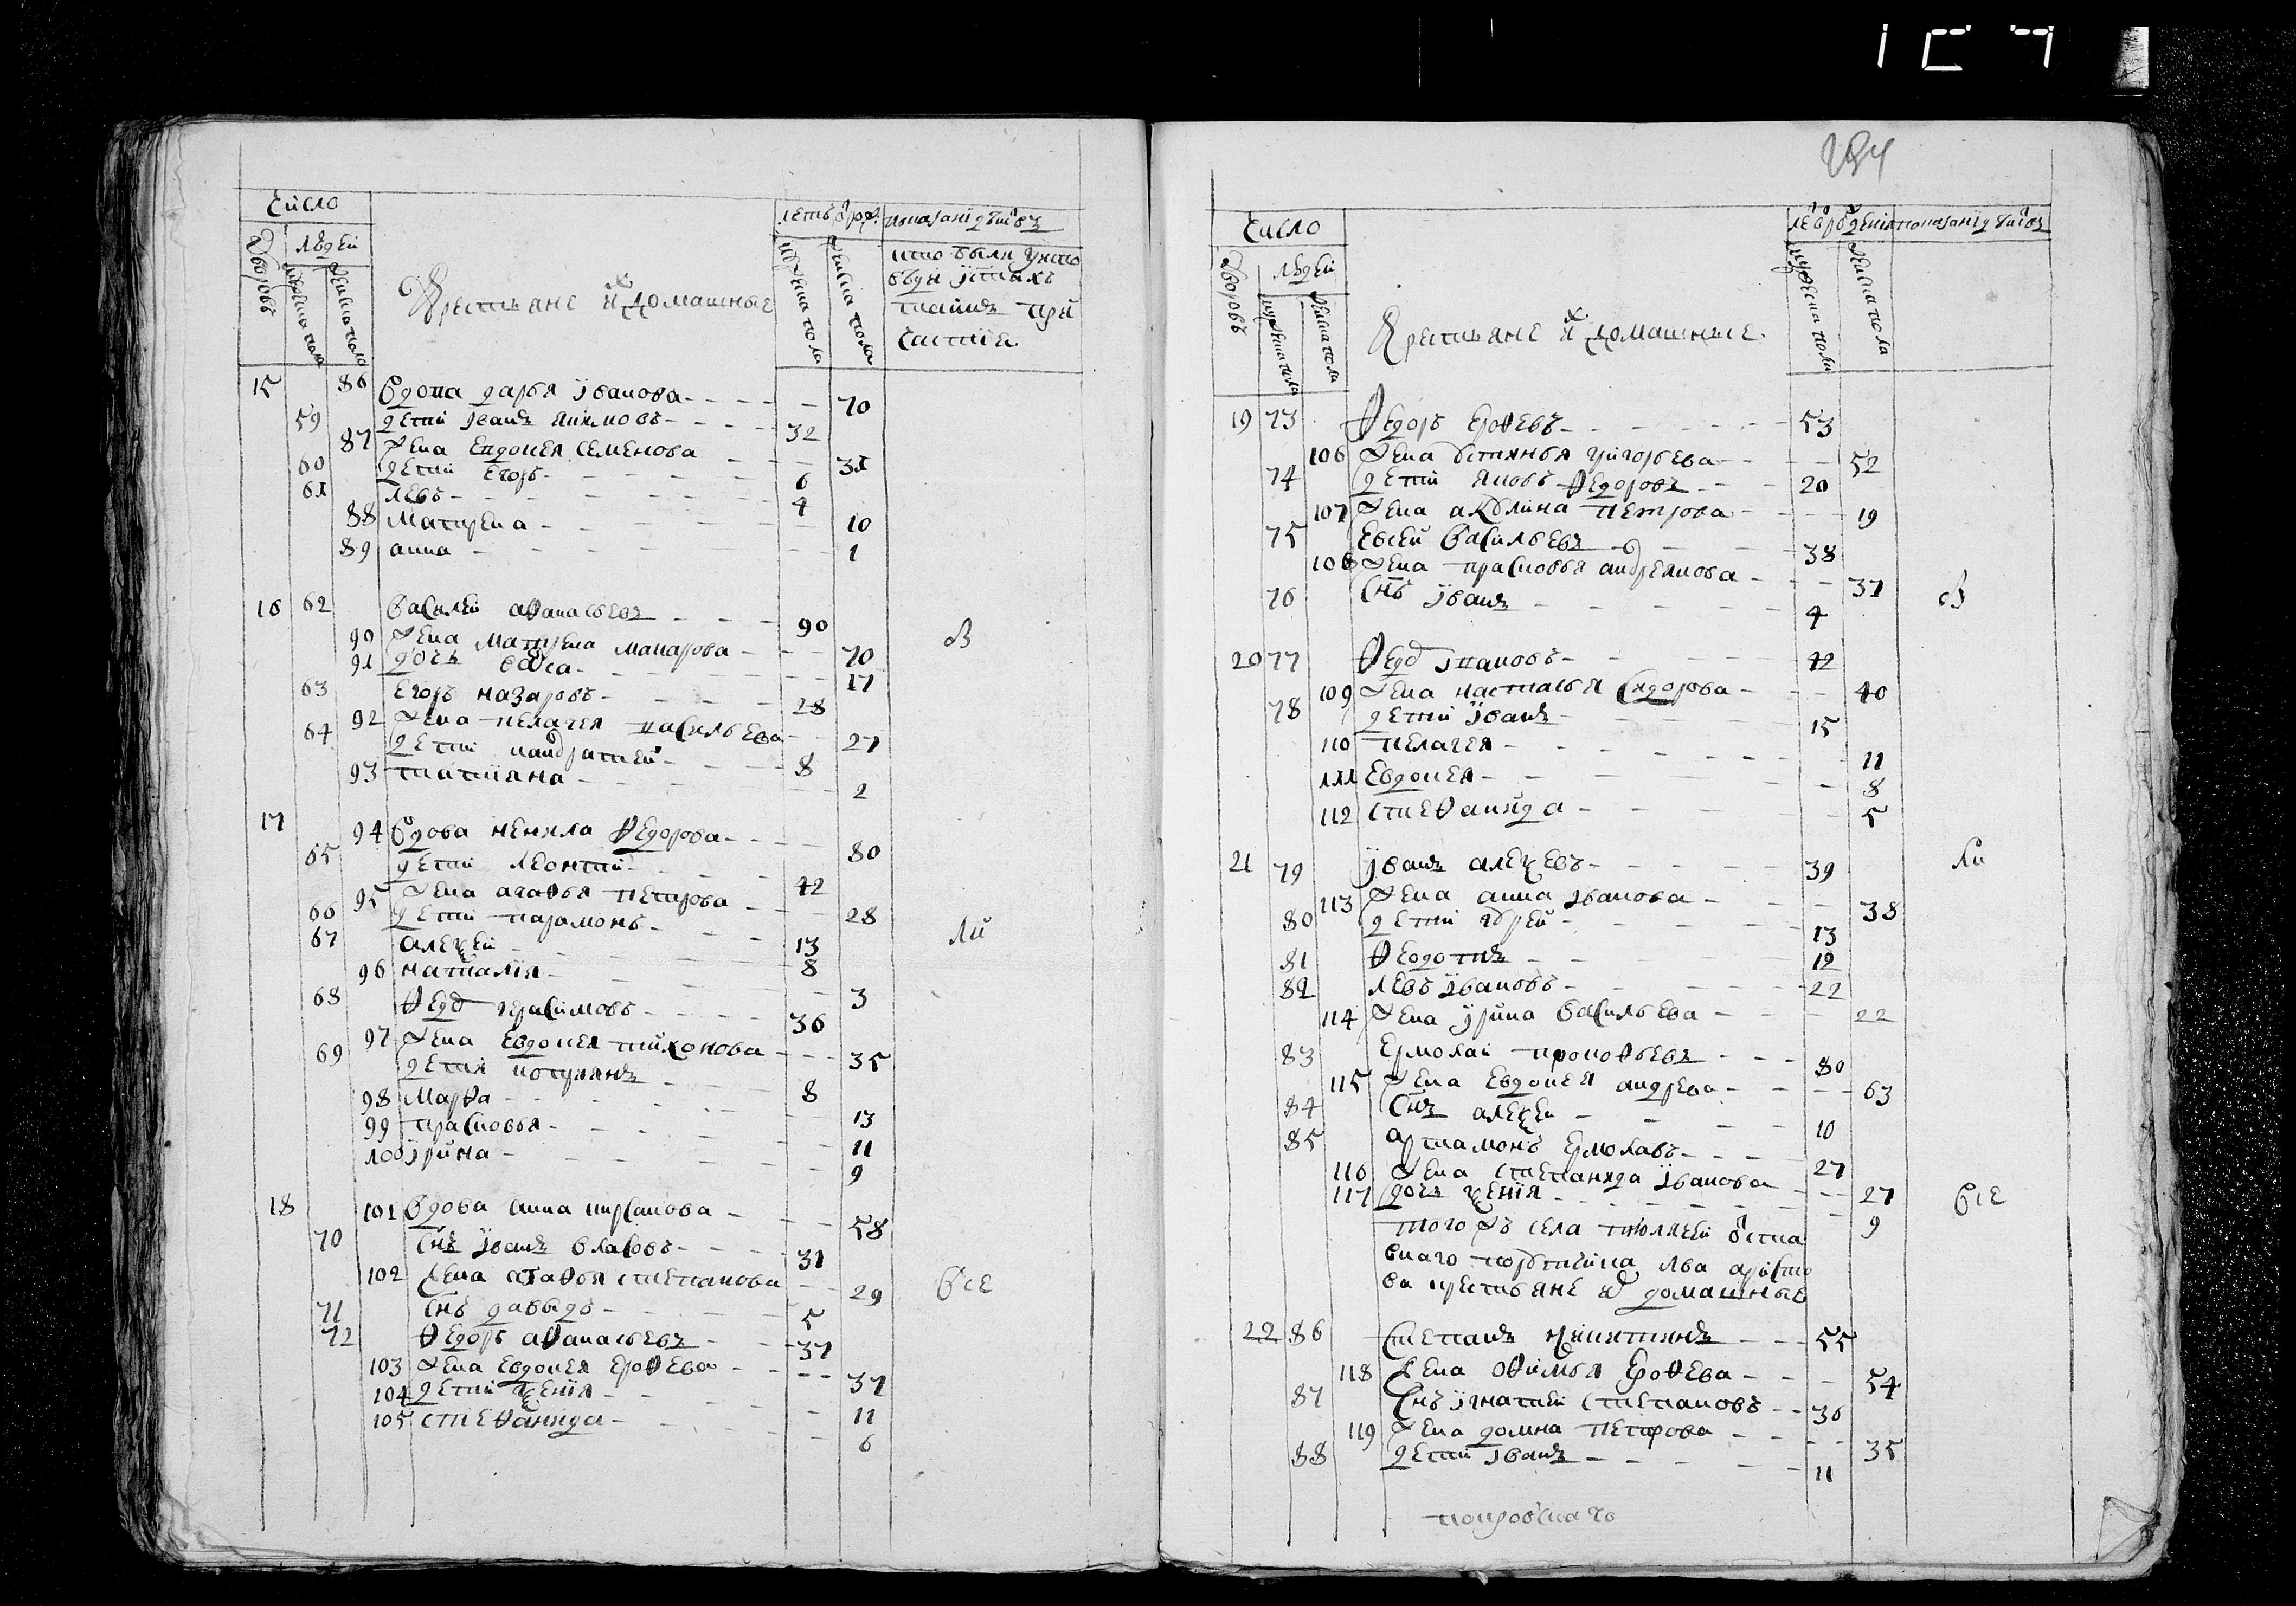 число
людей
дворовъ
мужеска пола
женска пола
Крестьяне и их домашные
летъ
мужеска пола
женска пола
кто были у испо
веди и стыхъ
таинъ при
частие
15 86 вдова дарья иванова - 70
59 дети иванъ якимовъ - 32
87 жена евдокея семенова - 31
60 дети егоръ - 6
61 левъ - 4
88 матрена - 10
89 анна - 1
16 62 василей афанасьевъ - 90
90 жена матрена макарова - 70
91 дочь васса - 17
63 егоръ назаровъ - 28
92 жена пелагея васильева - 27
64 дети кандратей - 8
93 татияна - 2
17 94 вдова ненила федорова - 80
65 дети леонтий - 42
95 жена агафья петрова - 28
66 дети парамонъ - 13
67 алеѯей - 8
96 наталия - 3
68 федо герасимовъ - 36
97 жена евдокея тихонова - 35
69 дети - 8
98 марфа - 13
99 прасковья - 11
100 ирина - 9
18 101 вдова анна кирсанова - 58
70 снъ иванъ власовъ - 31
102 жена агафья степанова - 29
71 снъ давыдъ - 5
72 федоръ афанасьевъ - 37
103 жена евдокея ерофева - 37
104 дети ѯения - 11
105 стефанида - 6
в
ли
все
234
число
людей
дворовъ
мужеска пола
женска пола
Крестьяне и их домашные
мужеска пола
женска пола
19 73 федоръ ерофевъ - 53
106 жена устинья григорьева - 52
74 дети яковъ федоровъ - 20
107 жена акулина петрова - 19
75 евсей васильевъ - 38
108 жена прасковья андреянова - 37
76 снъ иванъ - 4
20 77 федо ивановъ - 42
109 жена настасья сидорова - 40
78 дети иванъ - 15
110 пелагея - 11
111 евдокея - 8
112 стефанида - 5
21 79 иванъ алеѯевъ - 39
113 жена анна иванова - 38
80 дети - 13
81 федотъ - 12
82 левъ ивановъ - 22
114 жена ирина васильева - 22
83 ермолаи прокофьевъ - 80
115 жена евдокея андрева - 63
84 снъ алеѯей - 10
85 артамонъ ермолавъ - 27
116 жена степанида иванова - 27
117 дочь ѯения - 9
того жъ села
лва
ва крестьяне и домашные
22 86 степанъ никитинъ - 55
118 жена офимья ерофева - 54
87 снъ игнатей степановъ - 36
119 жена домна петрова - 35
88 дети иванъ - 11
в
ли
все
покровскаго